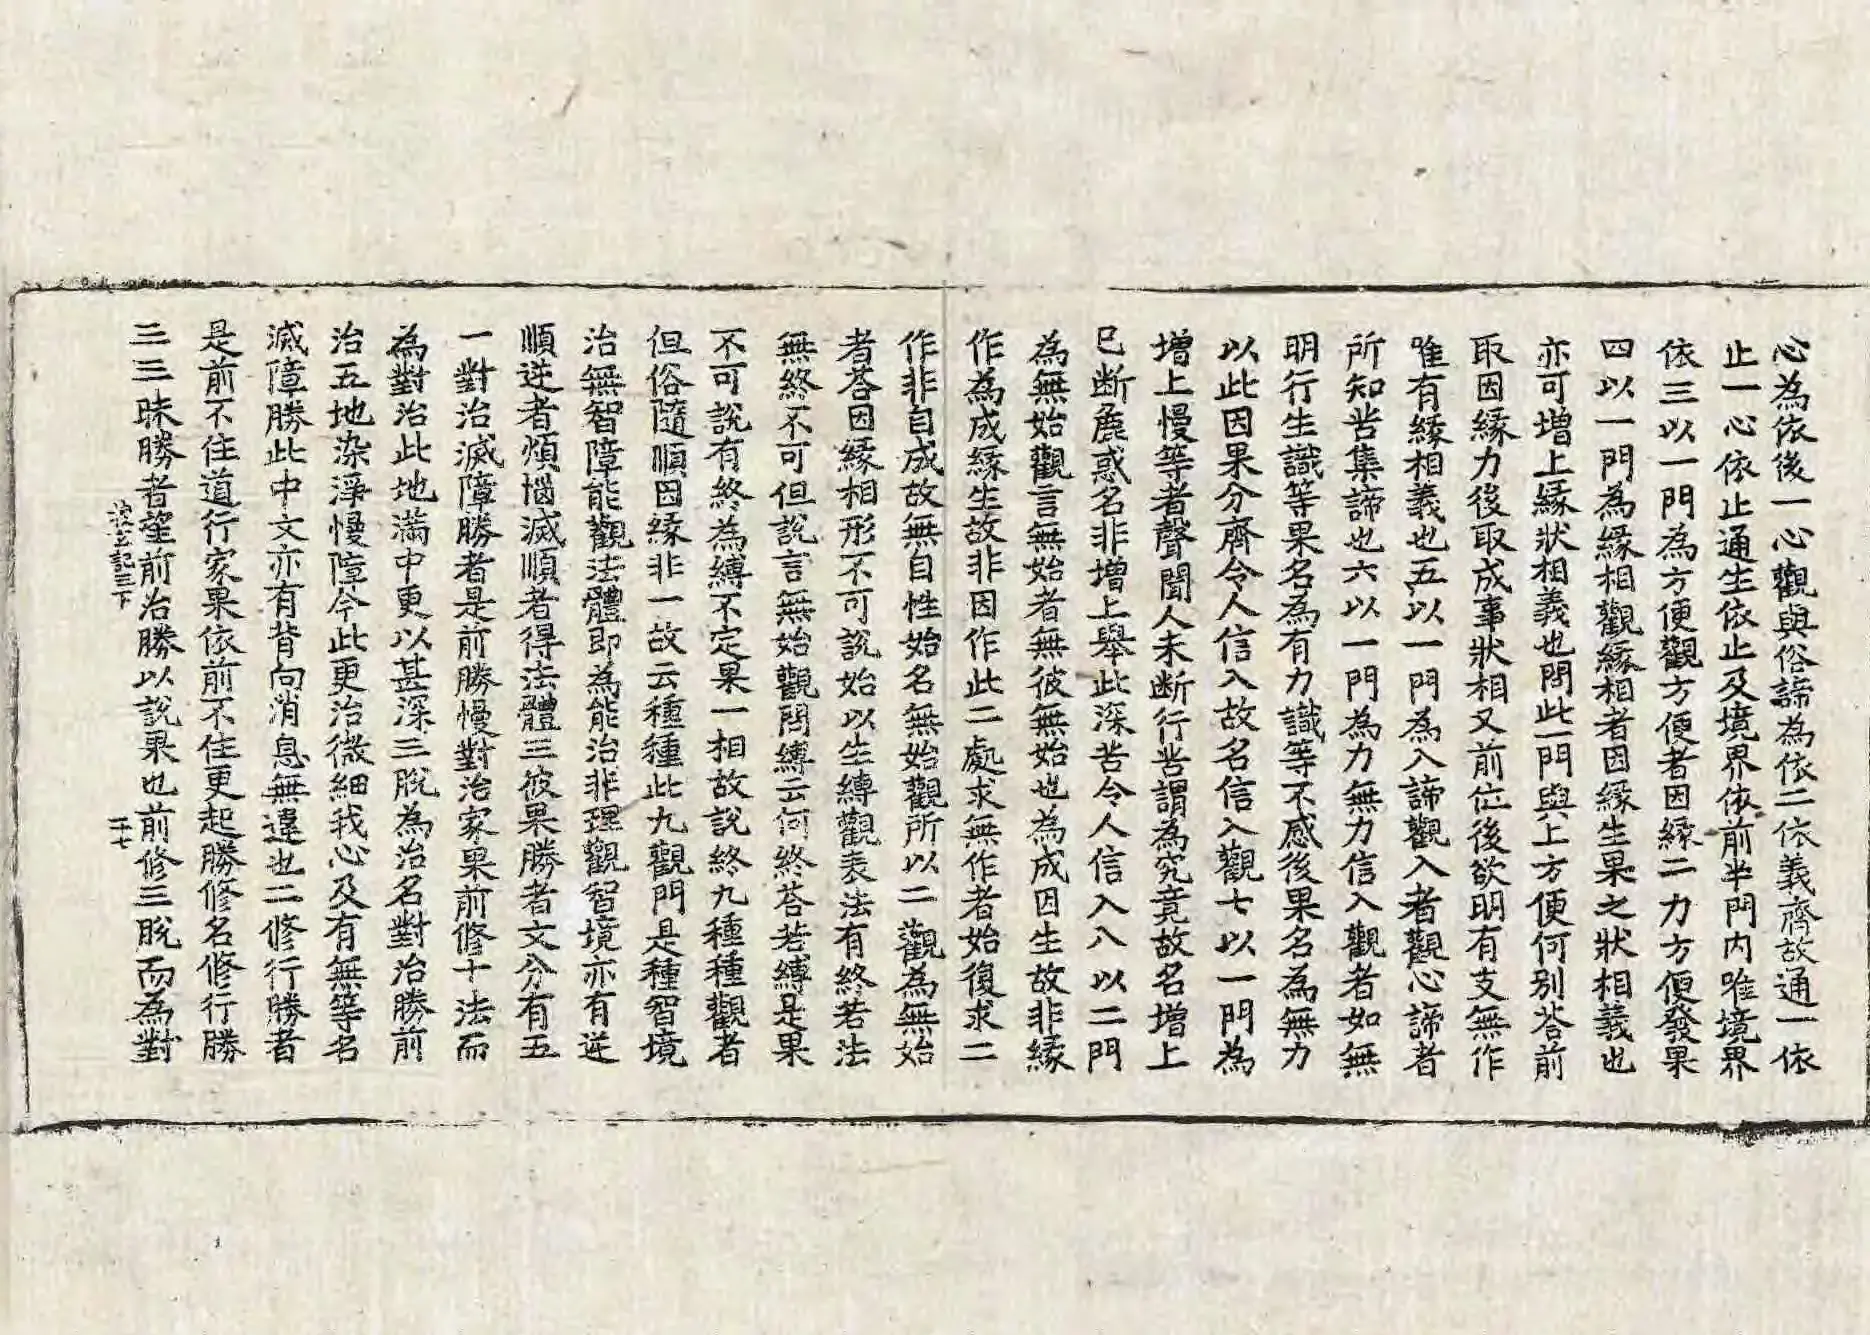 心為依後一心觀與俗諦為依二依義齊故通一依
止一心依止通生依止及境界依前半門內唯境界
依三以一門為方便觀方便者因緣二力方便發果
四以一門為緣相觀緣相者因緣生果之狀相義也
亦可增上緣狀相義也問此一門與上方便何別荅前
取因緣力後取成事狀相又前位後欲明有支無作
唯有緣相義也五以一門為入諦觀入者觀心諦者
所知苦集諦也六以一門為力無力信入觀者如無
明行生識等果名為有力識等不感後果名為無力
以此因果分齊令人信入故名信入觀七以一門為
增上慢等者聲聞人未斷行苦謂為究竟故名增上
已斷麁惑名非增上舉此深苦令人信入八以二門
為無始觀言無始者無彼無始也為成因生故非緣
作為成緣生故非因作此二處求無作者始復求二
作非自成故無自性始名無始觀所以二觀為無始
者荅因緣相形不可說始以生縛觀表法有終若法
無終不可但說言無始觀問縛云何終荅若縛是果
不可說有終為縛不定果一相故說終九種種觀者
但俗隨順因緣非一故云種種此九觀門是種智境
治無智障能觀法體即為能治非理觀智境亦有逆
順逆者煩惱滅順者得法體三彼果勝者文分有五
一對治滅障勝者是前勝慢對治家果前修十法而
為對治此地滿中更以甚深三脫為治名對治勝前
治五地染淨慢障今此更治微細我心及有無等名
滅障勝此中文亦有背向消息無違也二修行勝者
是前不住道行家果依前不住更起勝修名修行勝
三三昧勝者望前治勝以說果也前修三脫而為對
記三下
二十七